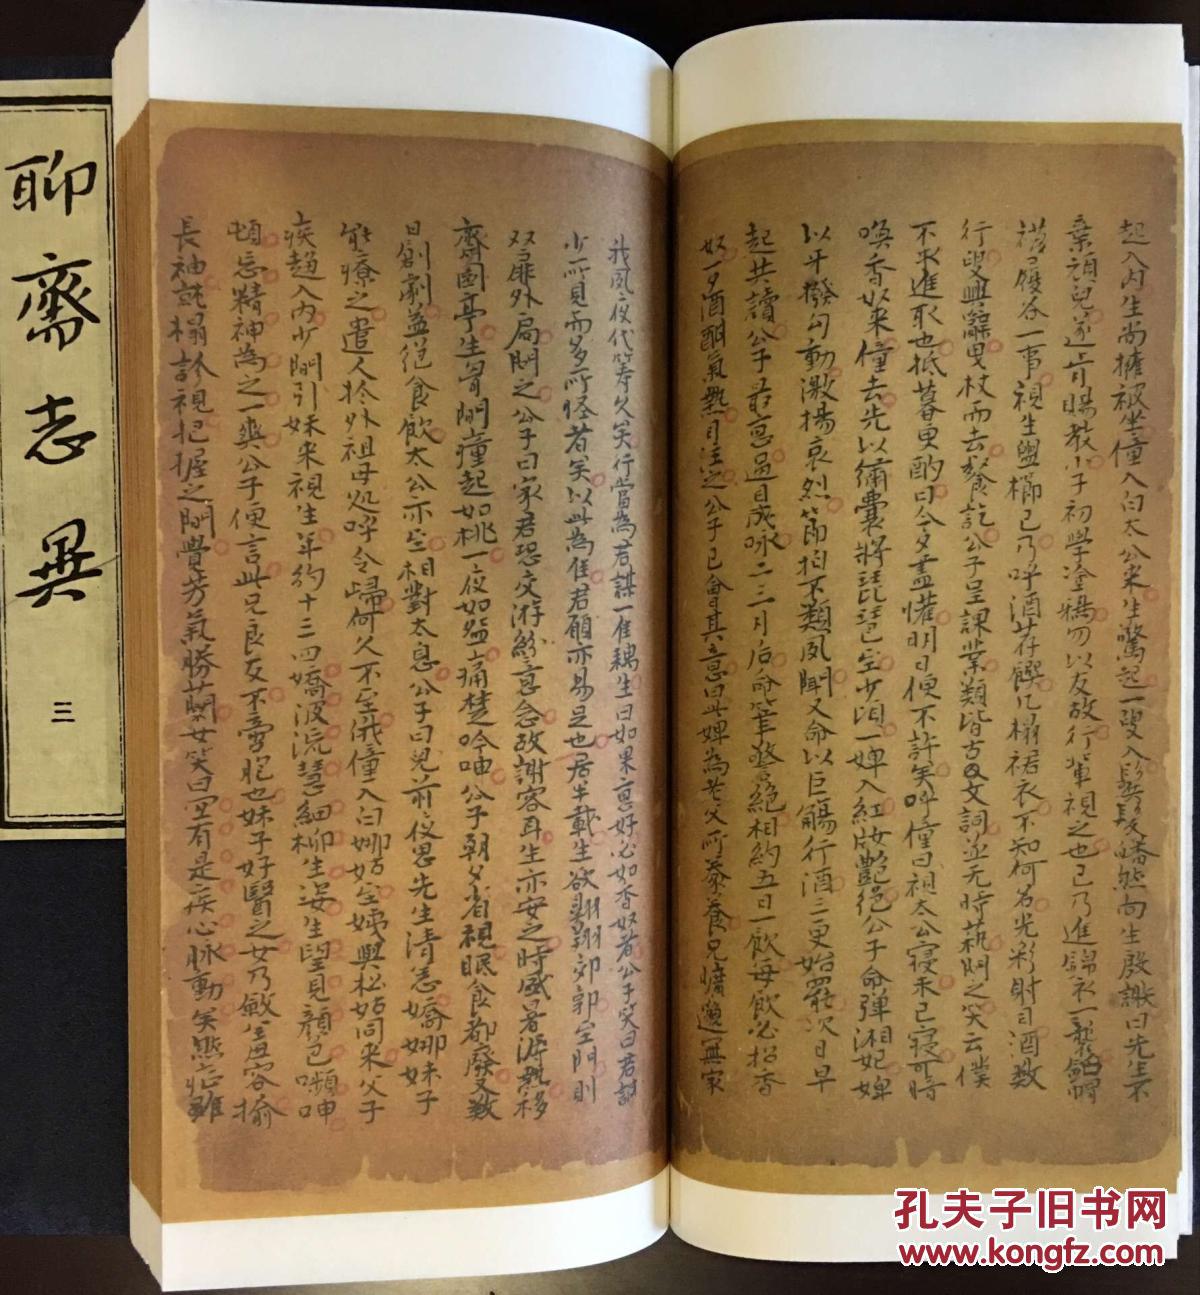 起入内生尚擁被坐僮入白太公來生驚起一叟入鬢髮皤然向生殷謝曰先生不
棄頑兒遂肯賜教小子初學塗鴉勿以友故行輩視之也已乃進錦衣一襲貂帽
襪履各一事視生盥櫛已乃呼酒荐饌几榻裙衣不知何名光彩射目酒數
行叟興辭曳杖而去餐訖公子呈課業類皆古文詞並无時蓺問之笑云僕
不求進取也抵暮更酌曰今夕盡懽明日便不許矣呼僮曰視太公寢未已寢可暗
喚香奴來僮去先以繡囊將琵琶至少頃一婢入紅妝艷絕公子命彈湘妃婢
以牙撥勾動激揚哀烈節拍不類夙聞又命以巨觴行酒三更始罷次日早
起共讀公子最惠過目成咏二三月后命筆警絕相約五日一飲每飲必招香
奴一夕酒酣氣熱目注之公子已會其意曰此婢為老父所豢養兄曠邈無家
我夙夜代筹久矣行當為君謀一佳耦生曰如果惠好必如香奴者公子笑曰君誠
少所見而多所怪者矣以此為佳君願亦易足也居半載生欲翱翔郊郭至門則
双扉外扃問之公子曰家君恐交游紛意念故謝客耳生亦安之時盛暑溽熱移
齋園亭生胸間瘇起如桃一夜如盌痛楚吟呻公子朝夕省視眠食都廢又數
日創劇益絕食飲太公亦至相對太息公子曰兒前夜思先生清恙嬌娜妹子
能療之遣人於外祖母処呼令歸何久不至俄僮入白娜姑至姨與松姑同來父子
疾趨入内少間引妹來視生年約十三四嬌波流慧細柳生姿生望見顏色嚬呻
頓忘精神為之一爽公子便言此兄良友不啻胞也妹子好醫之女乃斂羞容揄
長袖就榻診視把握之間覺芳氣勝蘭女笑曰宜有是疾心脉動矣然症雖
聊齋志異
三
孔夫子旧书网
www.kongfz.com